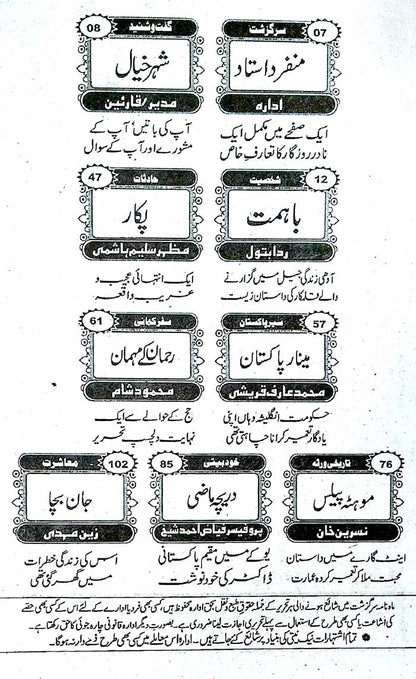 سرگزشت 07
منفرد استاد
ادارہ
ایک صفحے میں مکمل ایک
نادر روزگار کا تعارفِ خاص
گفت و شنید 08
شہر خیال
مدیر/قارئین
آپ کی باتیں‘ آپ کے
مشورے اور آپ کے سوال
شخصیت 12
باہمت
ردا بتول
آدھی زندگی جیل میں گزارنے
والے قلمکار کی داستان زیست
حادثات 47
پکار
مظہر سلیم ہاشمی
ایک انتہائی عجیب و
غریب واقعہ
سیر پاکستان 57
مینار پاکستان
محمد عارف قریشی
حکومت انگلیشیہ وہاں اپنی
یادگار تعمیر کرانا چاہتی تھی
سفر کہانی 61
رحمان کے مہمان
محمود شام
حج کے حوالے سے ایک
نہایت دلچسپ تحریر
تاریخی ورثہ 76
موہٹہ پیلس
نسرین خان
اینٹ گارے میں داستان
محبت ملا کر تعمیر کردہ عمارت
خود بیتی 85
دریچۂ ماضی
پروفیسر فیاض احمد شیخ
یو کے میں مقیم پاکستانی
ڈاکٹر کی خود نوشت
معاشرت 102
جان بچا
زین مہدی
اس کی زندگی خطرات
میں گھر گئی تھی
ماہنامہ سرگزشت میں شائع ہونے والی ہر تحریر کے جملہ حقوق طبع و نقل بحق ادارہ محفوظ ہیں، کسی بھی فرد یا ادارے کے لئے اس کے کسی بھی حصے
کی اشاعت یا کسی بھی طرح کے استعمال سے پہلے تحریری اجازت لینا ضروری ہے۔ بصورت دیگر ادارہ قانونی چارہ جوئی کا حق رکھتا ہے۔
• تمام اشتہارات نیک نیتی کی بنیاد پر شائع کیے جاتے ہیں۔ ادارہ اس معاملے میں کسی بھی طرح ذمے دار نہ ہوگا۔